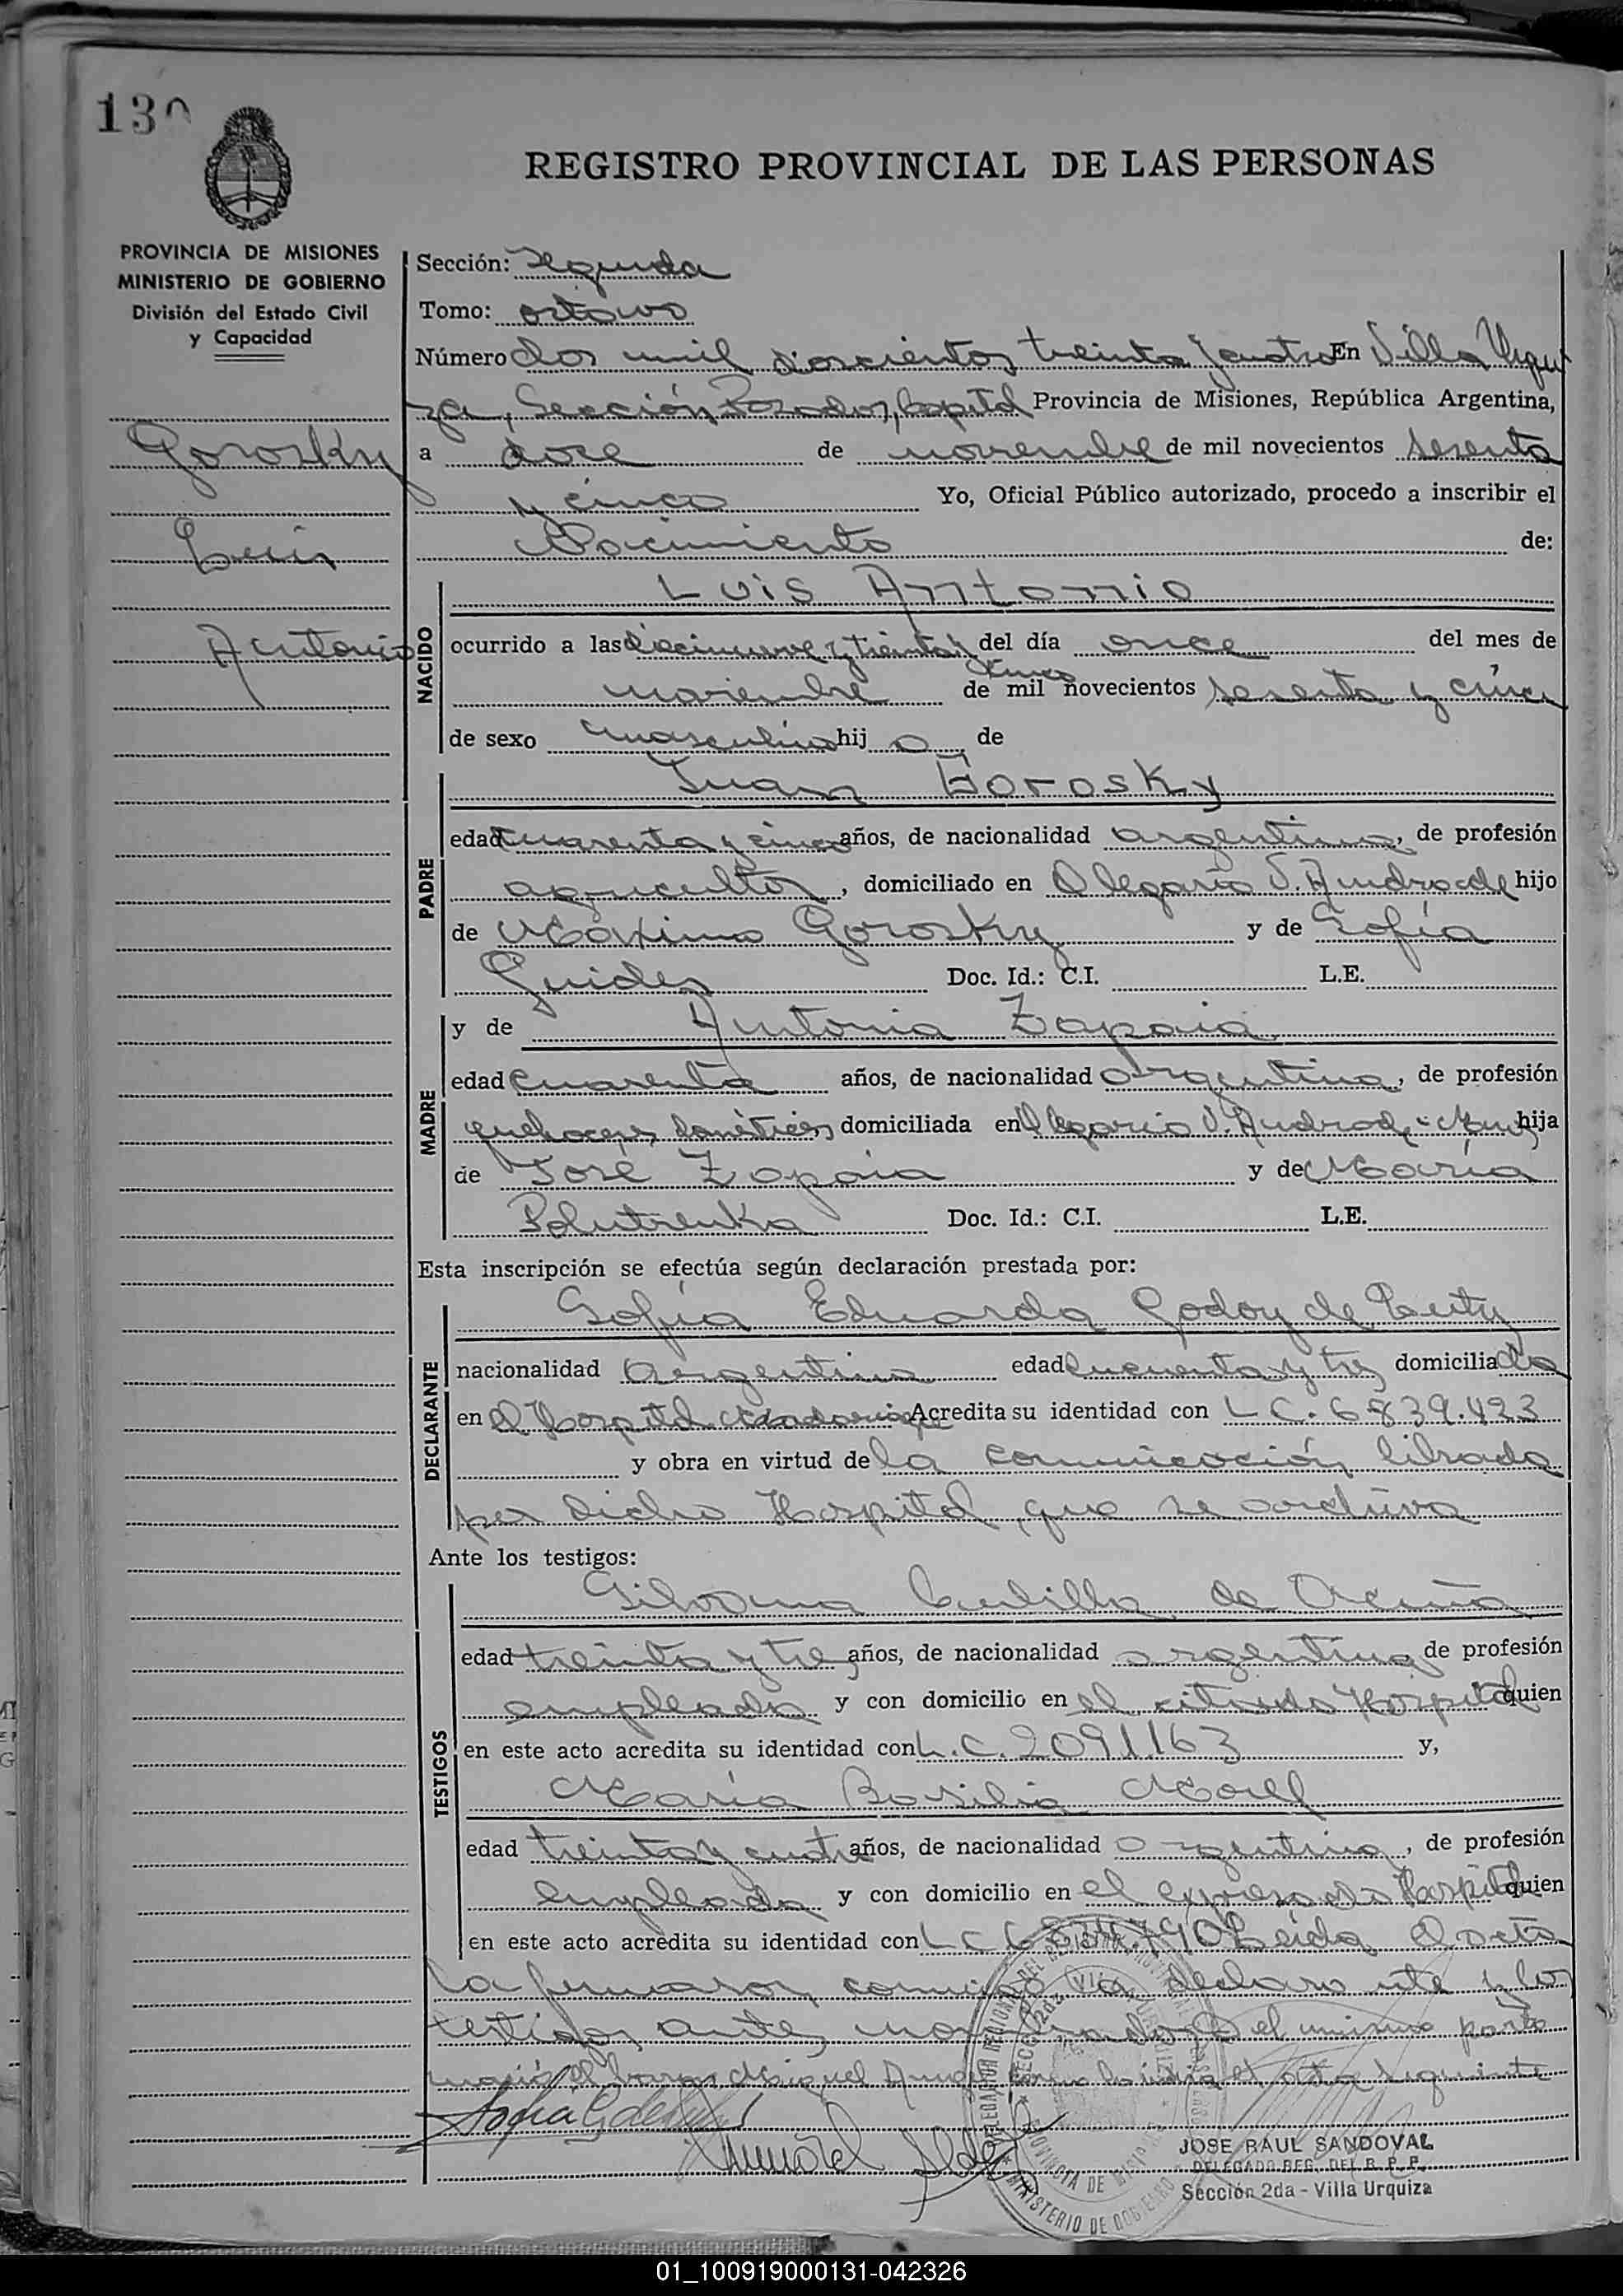 130
REGISTRO PROVINCIAL DE LAS PERSONAS
PROVINCIA DE MISIONES
MINISTERIO DE GOBIERNO
División del Estado Civil
y Capacidad
Gorosky
Luis
Antonio
Sección: Segunda
Tomo: octavo
Número dos mil doscientos treinta y cuatro En Villa Urqui
za, Sección Posadas, Capital Provincia de Misiones, República Argentina,
a doce de noviembre de mil novecientos sesenta
y cinco Yo, Oficial Público autorizado, procedo a inscribir el
Nacimiento de:
NACIDO
Luis Antonio
ocurrido a las diecinueve y treinta del día once del mes de
noviembre de mil novecientos sesenta y cinco
de sexo masculino hij o de
PADRE
Juan Gorosky
edad cuarenta y cinco años, de nacionalidad argentina, de profesión
agricultor, domiciliado en Olegario V. Andrade hijo
de Máximo Gorosky y de Sofía
Doc. Id.: C.I. L.E.
MADRE
y de Antonia Zapaia
edad cuarenta años, de nacionalidad argentina, de profesión
quehaceres domésticos domiciliada en Olegario V. Andrade hija
de José Zapaia y de María
Polutrenko Doc. Id.: C.I. L.E.
Esta inscripción se efectúa según declaración prestada por:
DECLARANTE
Sofía Eduarda Godoy de
nacionalidad Argentina edad cincuenta y tres domiciliada
en el Hospital Acredita su identidad con L C. 6839.423
y obra en virtud de la comunicación librada
por dicho Hospital, que se archiva
Ante los testigos:
TESTIGOS
Silvana de Acuña
edad treinta y tres años, de nacionalidad argentina, de profesión
empleada y con domicilio en el citado Hospital quien
en este acto acredita su identidad con L.C. 2091163 y,
María Basilia Morel
edad treinta y cuatro años, de nacionalidad argentina, de profesión
empleada y con domicilio en el expresado Hospital quien
en este acto acredita su identidad con L C Leída el acta
la firmaron conmigo la declarante y los
testigos antes el mismo parto
nació el varón Miguel Angel el acta siguiente
JOSE RAUL SANDOVAL
DELEGADO REG. DEL R. P. P.
Sección 2da - Villa Urquiza
01_100919000131-042326